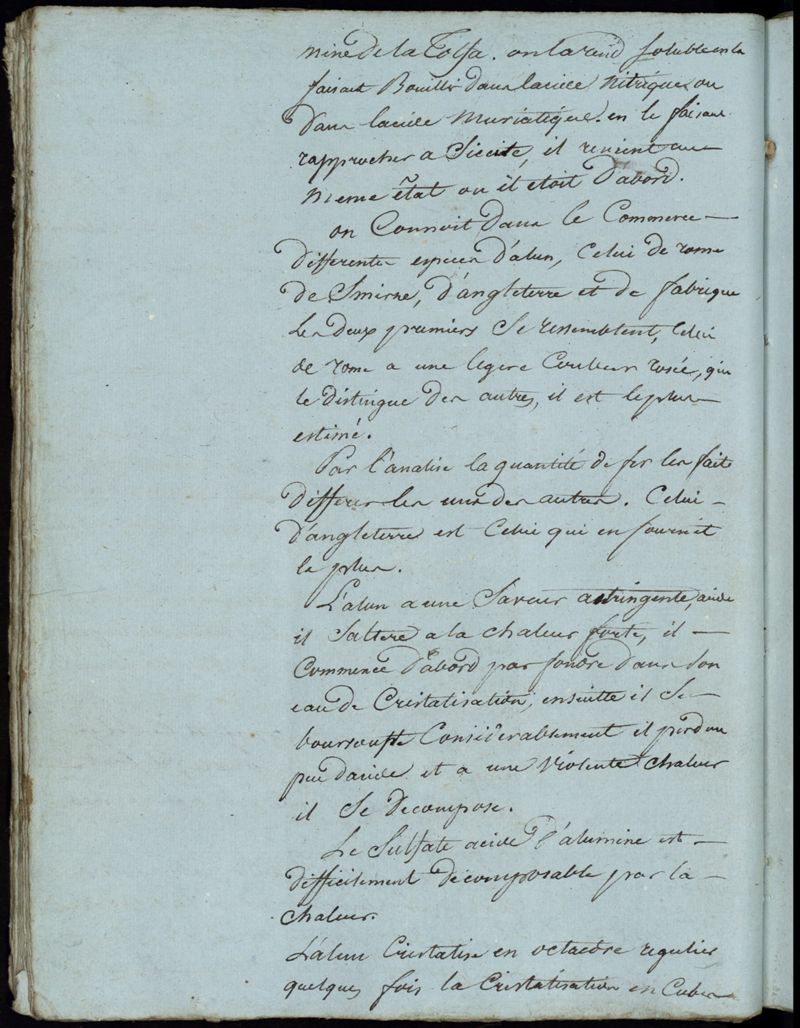 mine de la Tolfa. on la rend soluble en la
faisant Bouillir dans lacide Nitrique ou
Dans lacide Muriatique. en le faisant
rapprocher a Siccité, il revient au
meme êtat ou il étoit D'abord.
on Connoit Dans le Commerce
Differentes especes D'alun, Celui De rome
De Smirne, D'angleterre et de fabrique
Les Deux premiers Se ressemblent, Celui
de rome a une legere Couleur rosée, qui
le Distingue Des autres, il est le plus
estimé.
Par l'analise la quantité de fer les fait
Differer les uns des autres. Celui
D'angleterre est Celui qui en fournit
le plus.
L'alun a une Saveur astringente, acide
il Saltere a la chaleur forte, il
Commence D'abord par fondre Dans Son
eau de Cristalisation, ensuitte il Se
boursouffle Considerablement il perd un
peu dacide et a une Violente chaleur
il Se Decompose.
Le Sulfate acide D'alumine est
difficilement Décomposable par la
chaleur.
L'alun Cristalise en octaedre regulier
quelques fois la Cristalisation en Cubes